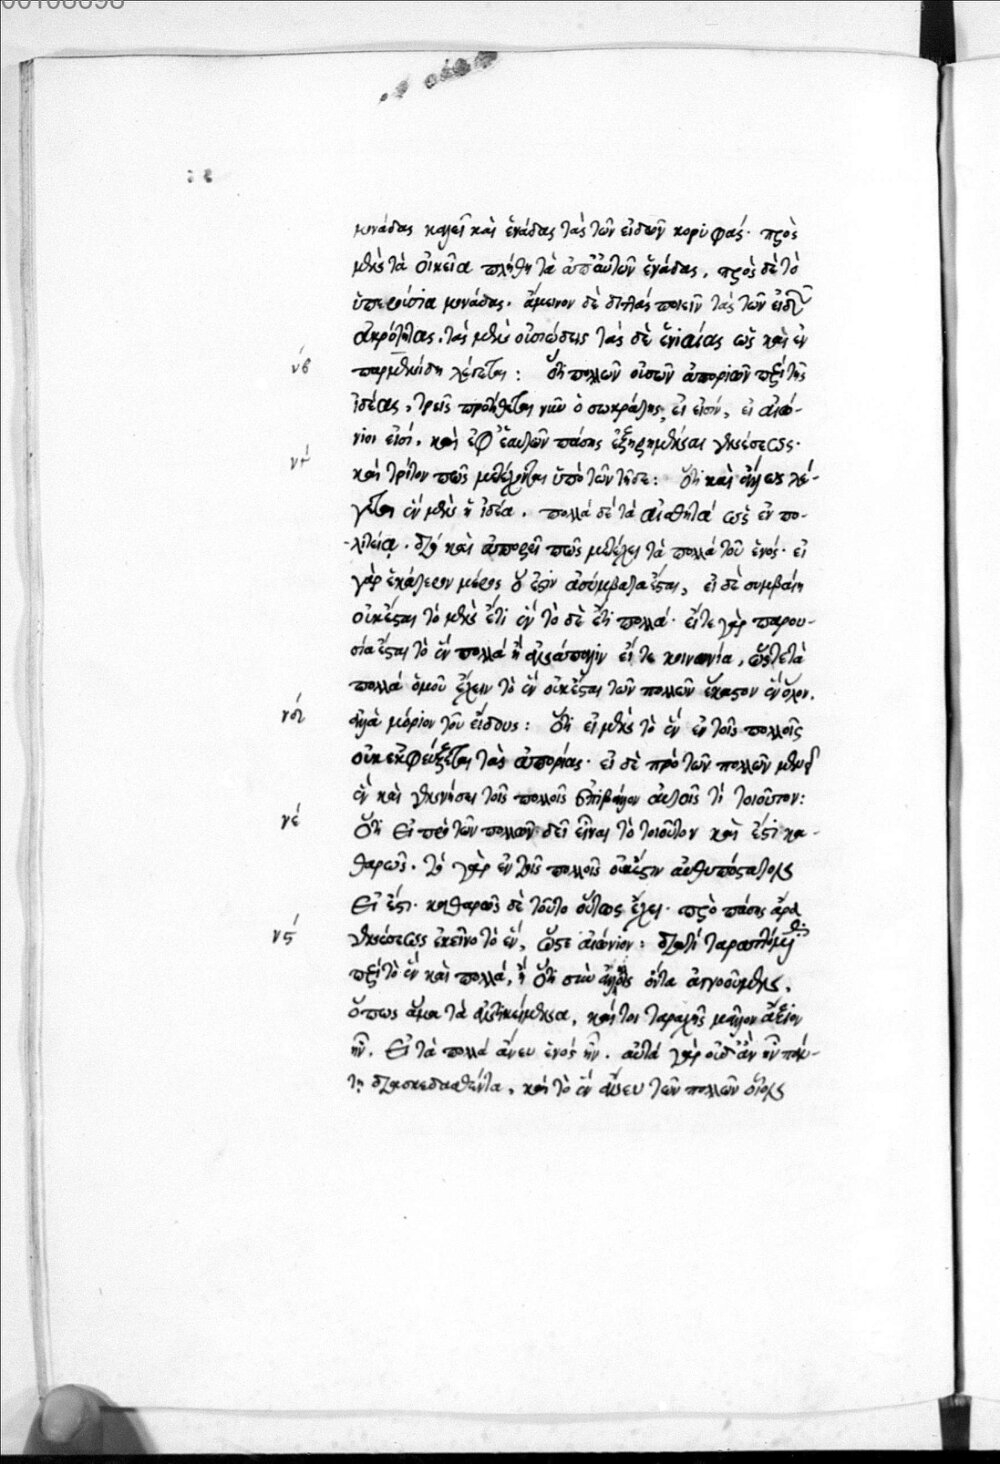 μονάδας καλεῖ καὶ ἑνάδας τὰς τῶν εἰδῶν κορυφάς· πρὸς
μὲν τὰ οἰκεῖα πλήθη τὰ ἀπ' αὐτῶν ἑνάδας, πρὸς δὲ τὸ
ὑπερούσια μονάδας. ἄμεινον δὲ διπλᾶς ποιεῖν τὰς τῶν εἰδῶν
ἀκρότητας, τὰς μὲν οὐσιώδεις τὰς δὲ ἑνιαίας ὡς καὶ ἐν
νβ
παρμενίδῃ λέγεται: ὅτι πολλῶν οὐσῶν ἀποριῶν περὶ τῆς
ἰδέας, τρεῖς προτίθεται νῦν ὁ σωκράτης, εἰ εἰσίν, εἰ αἰώ-
νιοι εἰσί, καὶ ἐφ' ἑαυτῶν πάσης ἐξηρημέναι γενέσεως.
νγ
καὶ τρίτον πῶς μετέχονται ὑπὸ τῶν τῇδε: ὅτι καὶ ἄλλως λέ-
γεται ἓν μὲν ἡ ἰδέα. πολλὰ δὲ τὰ αἰσθητά ὡς ἐν πο-
λιτείᾳ. διὸ καὶ ἀπορεῖ πῶς μετέχει τὰ πολλὰ τοῦ ἑνός· εἰ
γὰρ ἑκάτερον μέρος ὅ ἐστιν ἀσύμβατα ἔσται, εἰ δὲ συμβαίη
οὐκ ἔσται τὸ μὲν ἔτι ἓν τὸ δὲ ἔτι πολλά. εἴτε γὰρ παρου-
σία ἔσται τὸ ἓν πολλὰ ἢ ἀνάπαλιν εἴτε κοινωνία, ὥστε τὰ
πολλὰ ὁμοῦ ἔχειν τὸ ἓν οὐκ ἔσται τῶν πολλῶν ἕκαστον ἓν ὅλον,
νδ
ἀλλὰ μόριον τοῦ εἴδους: ὅτι εἰ μὲν τὸ ἓν ἐν τοῖς πολλοῖς
οὐκ ἐκφεύξεται τὰς ἀπορίας. εἰ δὲ πρὸ τῶν πολλῶν μένει
ἓν καὶ γεννήσει τοῖς πολλοῖς ἐπιβάλλον αὐτοῖς τι τοιοῦτον:
νε
Ὅτι εἰ πρὸ τῶν πολλῶν δεῖ εἶναι τὸ τοιοῦτον καὶ ἔστι κα-
θαρῶς. τὸ γὰρ ἐν τοῖς πολλοῖς οὐκ ἔστιν αὐθυπόστατον
εἰ ἔστι καθαρῶς δὲ τοῦτο οὕτως ἔχει. πρὸ πάσης ἄρα
νς
γενέσεως ἐκεῖνο τὸ ἕν, ὥστε αἰώνιον: διὰ τί ταραττόμεθα
περὶ τὸ ἓν καὶ πολλά, ἢ ὅτι σὺν ἀλλήλοις ὄντα ἀγνοοῦμεν,
ὅπως ἅμα τὰ ἀντικείμενα, καίτοι ταραχῆς μᾶλλον ἄξιον
ἦν, εἰ τὰ πολλὰ ἄνευ ἑνός ἦν. αὐτὰ γὰρ οὐδ' ἂν ἦν πάν-
τῃ διασκεδασθέντα, καὶ τὸ ἓν ἄνευ τῶν πολλῶν οἷον